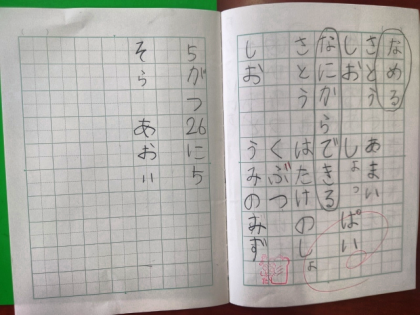 なめる
さとう　あまい
しお　しょっぱい
なにからできる
さとう　はたけのしょ
くぶつ
しお　うみのみず
5がつ26にち
そら　あおい